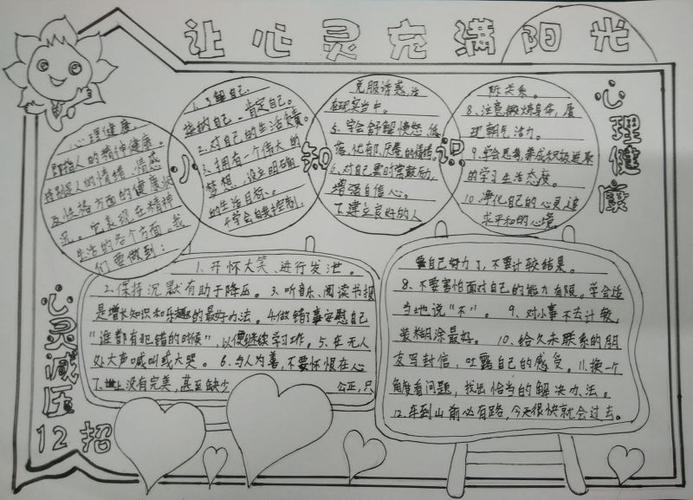 让心灵充满阳光
心理健康
小知识
心理健康，
即指人的精神健康。
特别是人的情绪、情感
及性格方面的健康状
况。它表现在精神
生活的各个方面，我
们要做到：
1.了解自己，
给的自己。肯定自己。
2.对自己的生活负责。
3.拥有一个伟大的
梦想，设立明确
的生活目标。
4.学会自我控制，
克服诱惑，活
在现实当中。
5.学会舒解愤怒、低
落、忧郁、厌倦的情绪，
6.对自己要时常鼓励，
增强自信心。
7.建立良好的人
际关系。
8.注意锻炼身体，展
现朝气活力。
9.学会思考，养成积极进取
的学习生活态度。
10.净化自己的心灵追
求平和的心境。
心灵减压
12招
1.开怀大笑、进行发泄。
2.保持沉默有助于降压。3.听音乐、阅读书报
是增长知识和乐趣的最好办法。4.做错了事安慰自己
“谁都有犯错的时候”，以便继续学习工作。5.在无人
处大声喊叫或大哭。6.与人为善，不要怀恨在心
7.世上没有完美，甚至缺少 公正，只
要自己努力了，不要计较结果。
8、不要害怕面对自己的能力有限。学会适
当地说“不”。9、对小事不去计较
装糊涂最好。10、给久未联系的朋
友写封信，吐露自己的感受。11.换一个
角度看问题，找出恰当的解决办法。
12.车到山前必有路，今天很快就会过去。